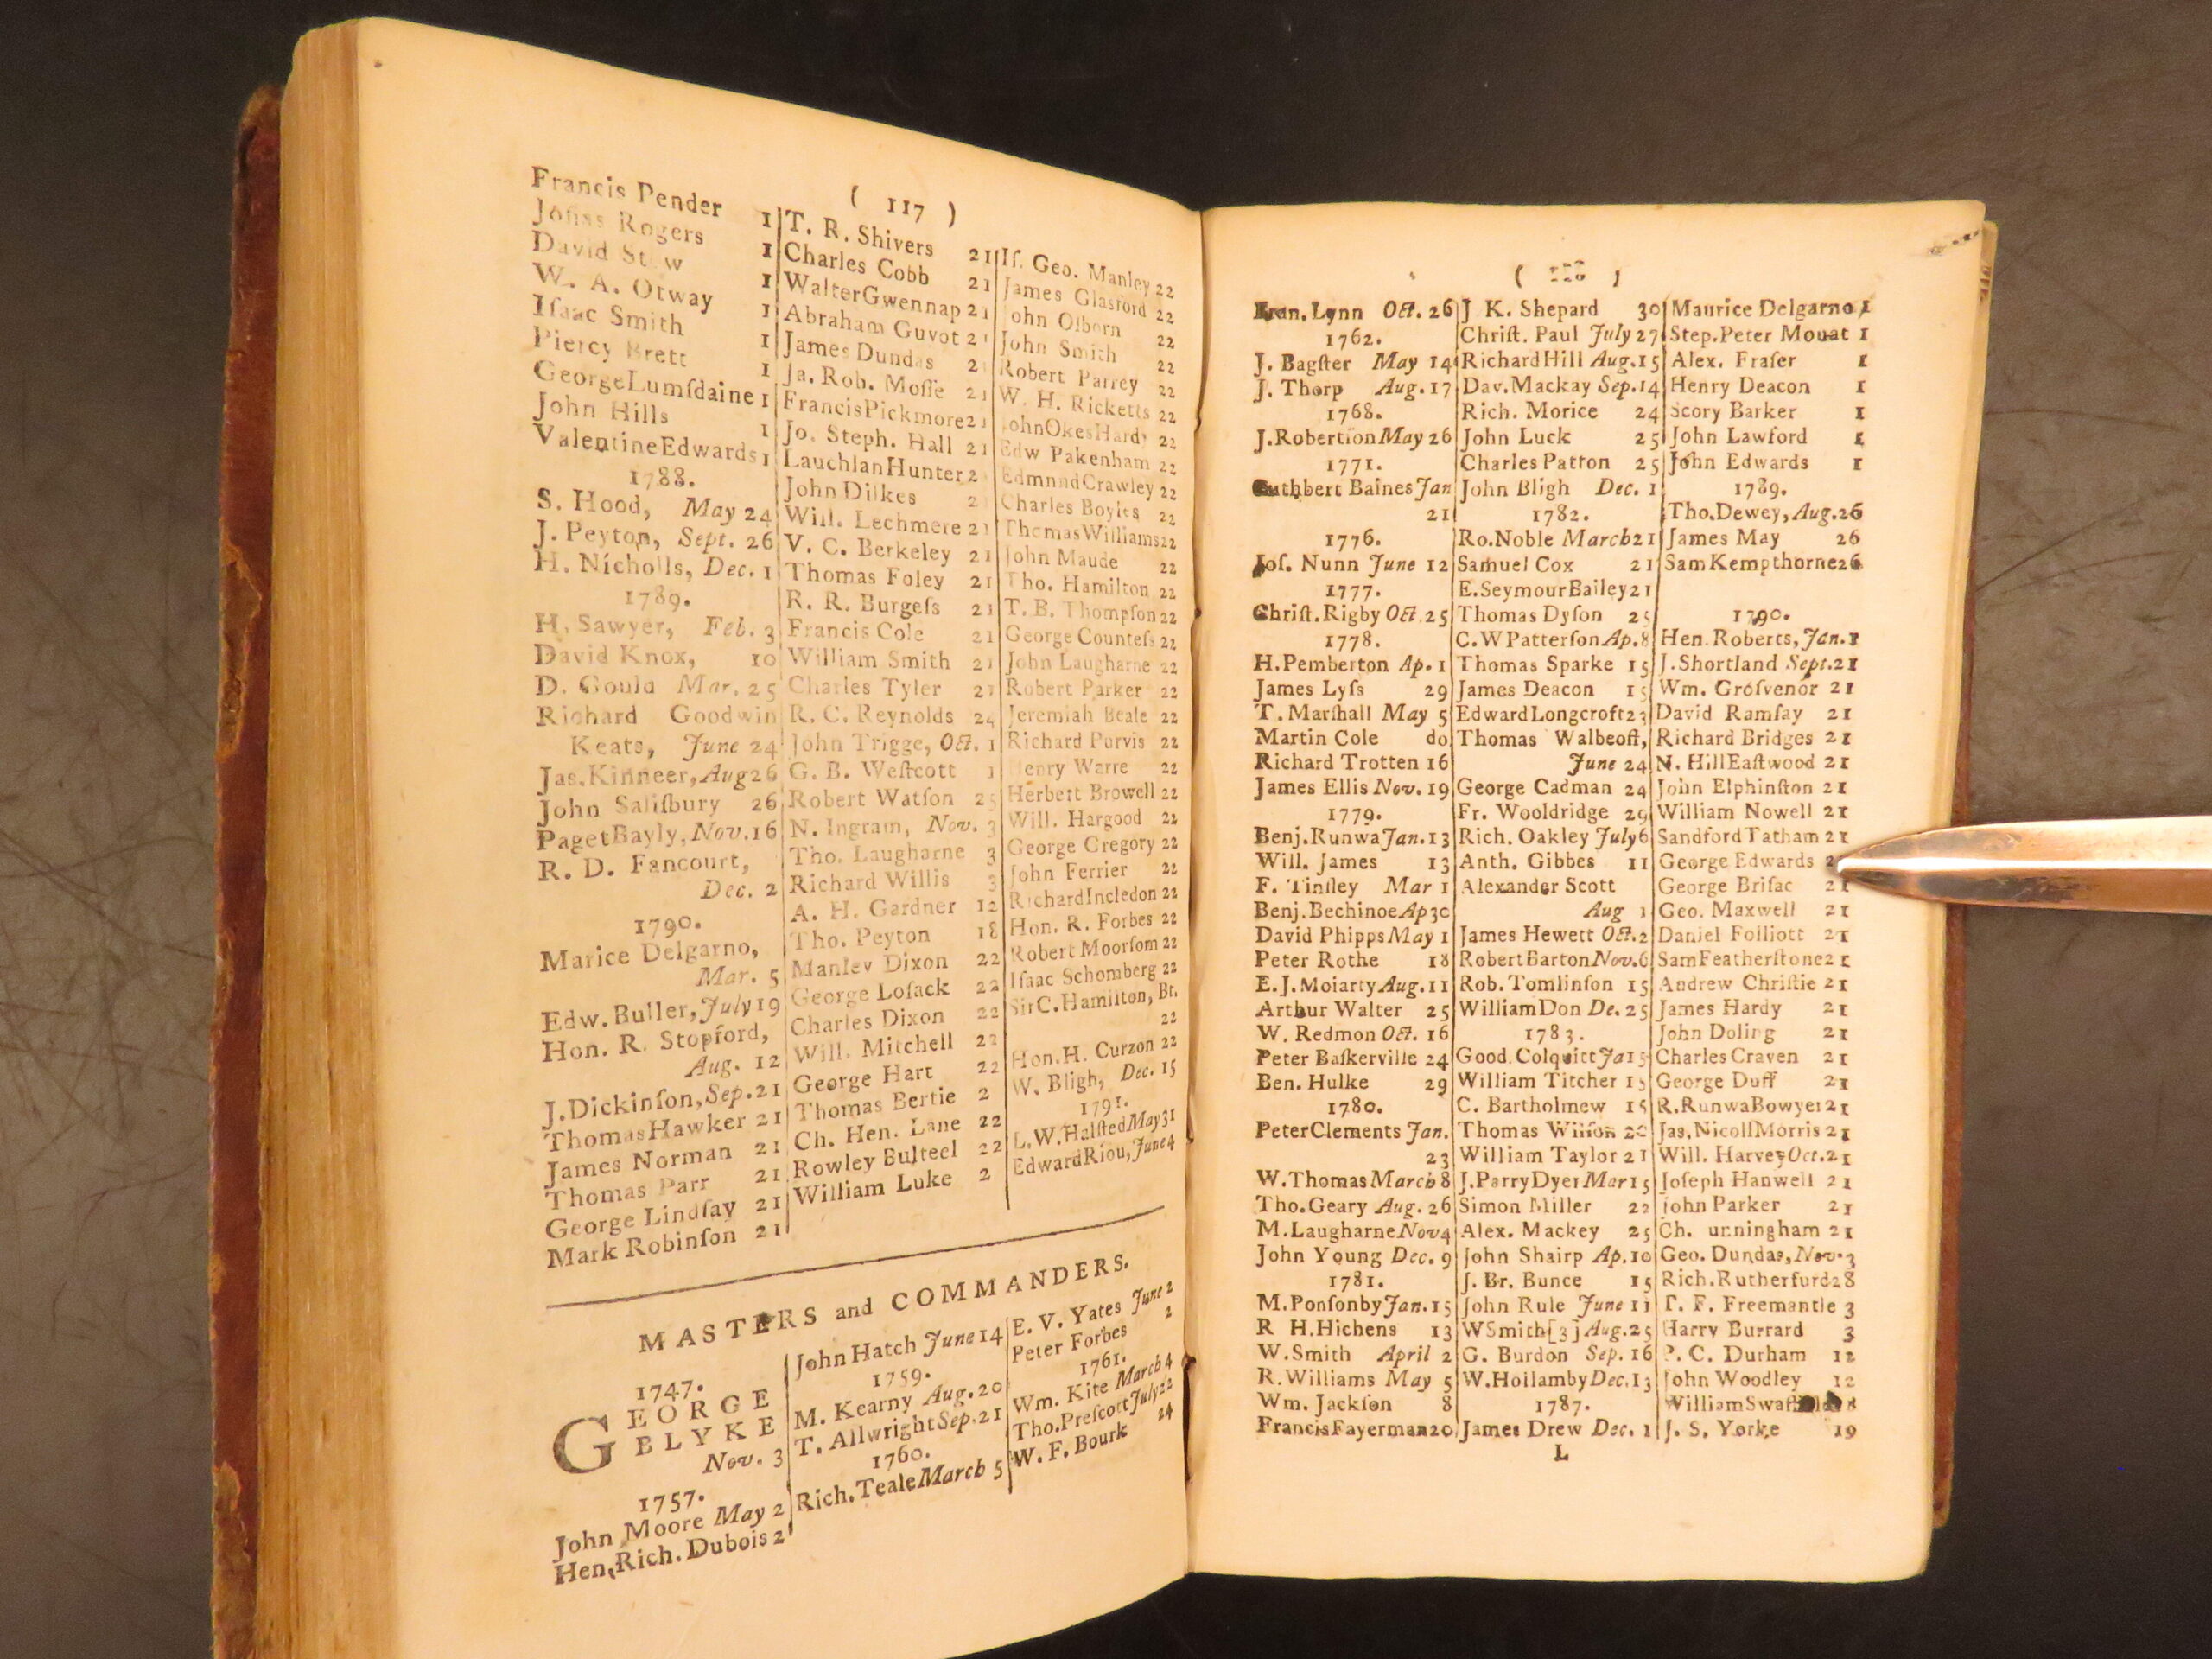 ( 117 )
Francis Pender 1
Joſias Rogers 1
David 1
W. A. Otway 1
Iſaac Smith 1
Piercy Brett 1
GeorgeLumſdaine 1
John Hills 1
ValentineEdwards 1
1788.
S. Hood, May 24
J. Peyton, Sept. 26
H. Nicholls, Dec. 1
1789.
H. Sawyer, Feb. 3
David Knox, 10
D. Gould Mar. 25
Richard Goodwin
Keats, June 24
Jas.Kinneer,Aug26
John Saliſbury 26
PagetBayly,Nov.16
R. D. Fancourt,
Dec. 2
1790.
Marice Delgarno,
Mar. 5
Edw. Buller, July 19
Hon. R. Stopford,
Aug. 12
J.Dickinſon,Sep.21
ThomasHawker 21
James Norman 21
Thomas Parr 21
George Lindſay 21
Mark Robinſon 21
T. R. Shivers 21
Charles Cobb 21
WalterGwennap 21
Abraham Guvot 21
James Dundas 21
Ja. Rob. Moſſe 21
FrancisPickmore21
Jo. Steph. Hall 21
LauchlanHunter2
John Dilkes 2
Will. Lechmere 21
V. C. Berkeley 21
Thomas Foley 21
R. R. Burgeſs 21
Francis Cole 21
William Smith 21
Charles Tyler 21
R. C. Reynolds 24
John Trigge, Oct. 1
G. B. Weſtcott 1
Robert Watſon 25
N. Ingram, Nov. 3
Tho. Laugharne 3
Richard Willis 3
A. H. Gardner 12
Tho. Peyton 18
Manley Dixon 22
George Loſack 22
Charles Dixon 22
Will. Mitchell 22
George Hart 22
Thomas Bertie 2
Ch. Hen. Lane 22
Rowley Bulteel 22
William Luke 2
Iſ. Geo. Manley 22
James Glasford 22
John Oſborn 22
John Smith 22
Robert Parrey 22
W. H. Ricketts 22
JohnOkesHardy 22
Edw Pakenham 22
EdmnndCrawley 22
Charles Boyles 22
ThomasWilliams22
John Maude 22
Tho. Hamilton 22
T. B. Thompſon 22
George Counteſs 22
John Laugharne 22
Robert Parker 22
Jeremiah Beale 22
Richard Purvis 22
Henry Warre 22
Herbert Browell 22
Will. Hargood 22
George Gregory 22
John Ferrier 22
RichardIncledon 22
Hon. R. Forbes 22
Robert Moorſom 22
Iſaac Schomberg 22
SirC.Hamilton, Bt.
22
Hon.H. Curzon 22
W. Bligh, Dec. 15
1791.
L.W.HalſtedMay31
EdwardRiou,June4
MASTERS and COMMANDERS.
1747.
GEORGE
BLYKE
Nov. 3
1757.
John Moore May 2
Hen,Rich.Dubois 2
John Hatch June 14
1759.
M. Kearny Aug. 20
T. AllwrightSep.21
1760.
Rich.TealeMarch 5
E. V. Yates June 2
Peter Forbes 2
1761.
Wm. Kite March 4
Tho.PreſcottJuly22
W. F. Bourk 24
( 118 )
Fran. Lynn Oct. 26
1762.
J. Bagſter May 14
J. Thorp Aug. 17
1768.
J.RobertſonMay 26
1771.
Cuthbert Baines Jan
21
1776.
Joſ. Nunn June 12
1777.
Chriſt.Rigby Oct 25
1778.
H.Pemberton Ap. 1
James Lyſs 29
T. Marſhall May 5
Martin Cole do
Richard Trotten 16
James Ellis Nov. 19
1779.
Benj.RunwaJan.13
Will. James 13
F. Tinſley Mar 1
Benj.BechinoeAp30
David Phipps May 1
Peter Rothe 18
E.J.MoiartyAug.11
Arthur Walter 25
W. Redmon Oct. 16
Peter Baſkerville 24
Ben. Hulke 29
1780.
PeterClements Jan.
23
W.ThomasMarch8
Tho.Geary Aug. 26
M.LaugharneNov4
John Young Dec. 9
1781.
M.PonſonbyJan.15
R H.Hichens 13
W.Smith April 2
R.Williams May 5
Wm. Jackſon 8
FrancisFayerman20
J K. Shepard 30
Chriſt. Paul July 27
RichardHill Aug.15
Dav.Mackay Sep.14
Rich. Morice 24
John Luck 25
Charles Patton 25
John Bligh Dec. 1
1782.
Ro.Noble March21
Samuel Cox 21
E.SeymourBailey21
Thomas Dyſon 25
C.WPatterſonAp.8
Thomas Sparke 15
James Deacon 15
EdwardLongcroft23
Thomas Walbeoff,
June 24
George Cadman 24
Fr. Wooldridge 29
Rich. Oakley July6
Anth. Gibbes 11
Alexander Scott
Aug 1
James Hewett Oct.2
RobertBartonNov.6
Rob. Tomlinſon 15
WilliamDon De.25
1783.
Good.ColquittJa15
William Titcher 15
C. Bartholmew 15
Thomas Wilſon 20
William Taylor 21
J.ParryDyerMar15
Simon Miller 22
Alex. Mackey 25
John Shairp Ap.10
J. Br. Bunce 15
John Rule June 11
WSmith[3]Aug.25
G. Burdon Sep. 16
W.HollambyDec.13
1787.
James Drew Dec. 1
Maurice Delgarno 1
Step.Peter Mouat 1
Alex. Fraſer 1
Henry Deacon 1
Scory Barker 1
John Lawford 1
John Edwards 1
1789.
Tho.Dewey,Aug.26
James May 26
SamKempthorne26
1790.
Hen.Roberts,Jan.1
J.Shortland Sept.21
Wm. Groſvenor 21
David Ramſay 21
Richard Bridges 21
N. HillEaſtwood 21
John Elphinſton 21
William Nowell 21
SandfordTatham 21
George Edwards 2
George Briſac 21
Geo. Maxwell 21
Daniel Folliott 21
SamFeatherſtone21
Andrew Chriſtie 21
James Hardy 21
John Doling 21
Charles Craven 21
George Duff 21
R.RunwaBowyer21
Jas.NicollMorris 21
Will. HarveyOct.21
Joſeph Hanwell 21
John Parker 21
Ch. unningham 21
Geo. Dundas,Nov.3
Rich.Rutherfurd28
T. F. Freemantle 3
Harry Burrard 3
P. C. Durham 12
John Woodley 12
J. S. Yorke 19
L